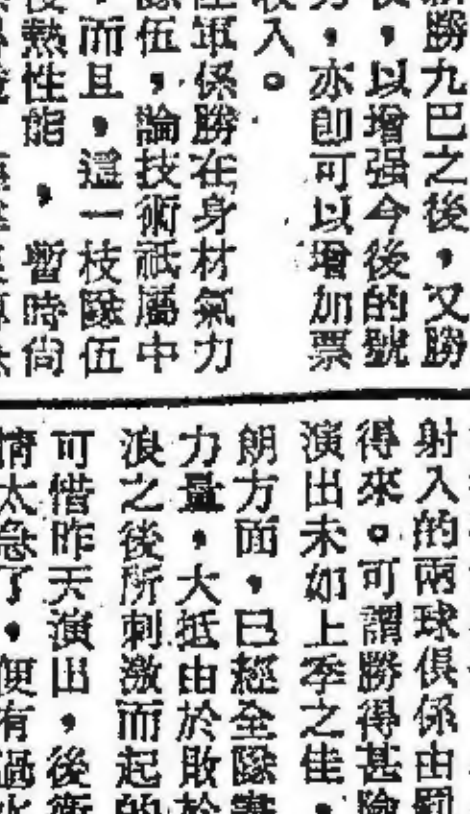 勝九巴之後，又勝
，以增强今後的號
，亦卽可以增加票
入。
軍係勝在身材氣力
伍，論技術祇屬中
而且，這一枝隊伍
熱性能，暫時尙
射入的兩球俱係由罰
得來。可謂勝得甚險
演出未如上季之佳，
朗方面，已經全隊盡
力量，大抵由於敗於
浪之後所刺激而起的
可惜昨天演出，後衛
太急了，便有